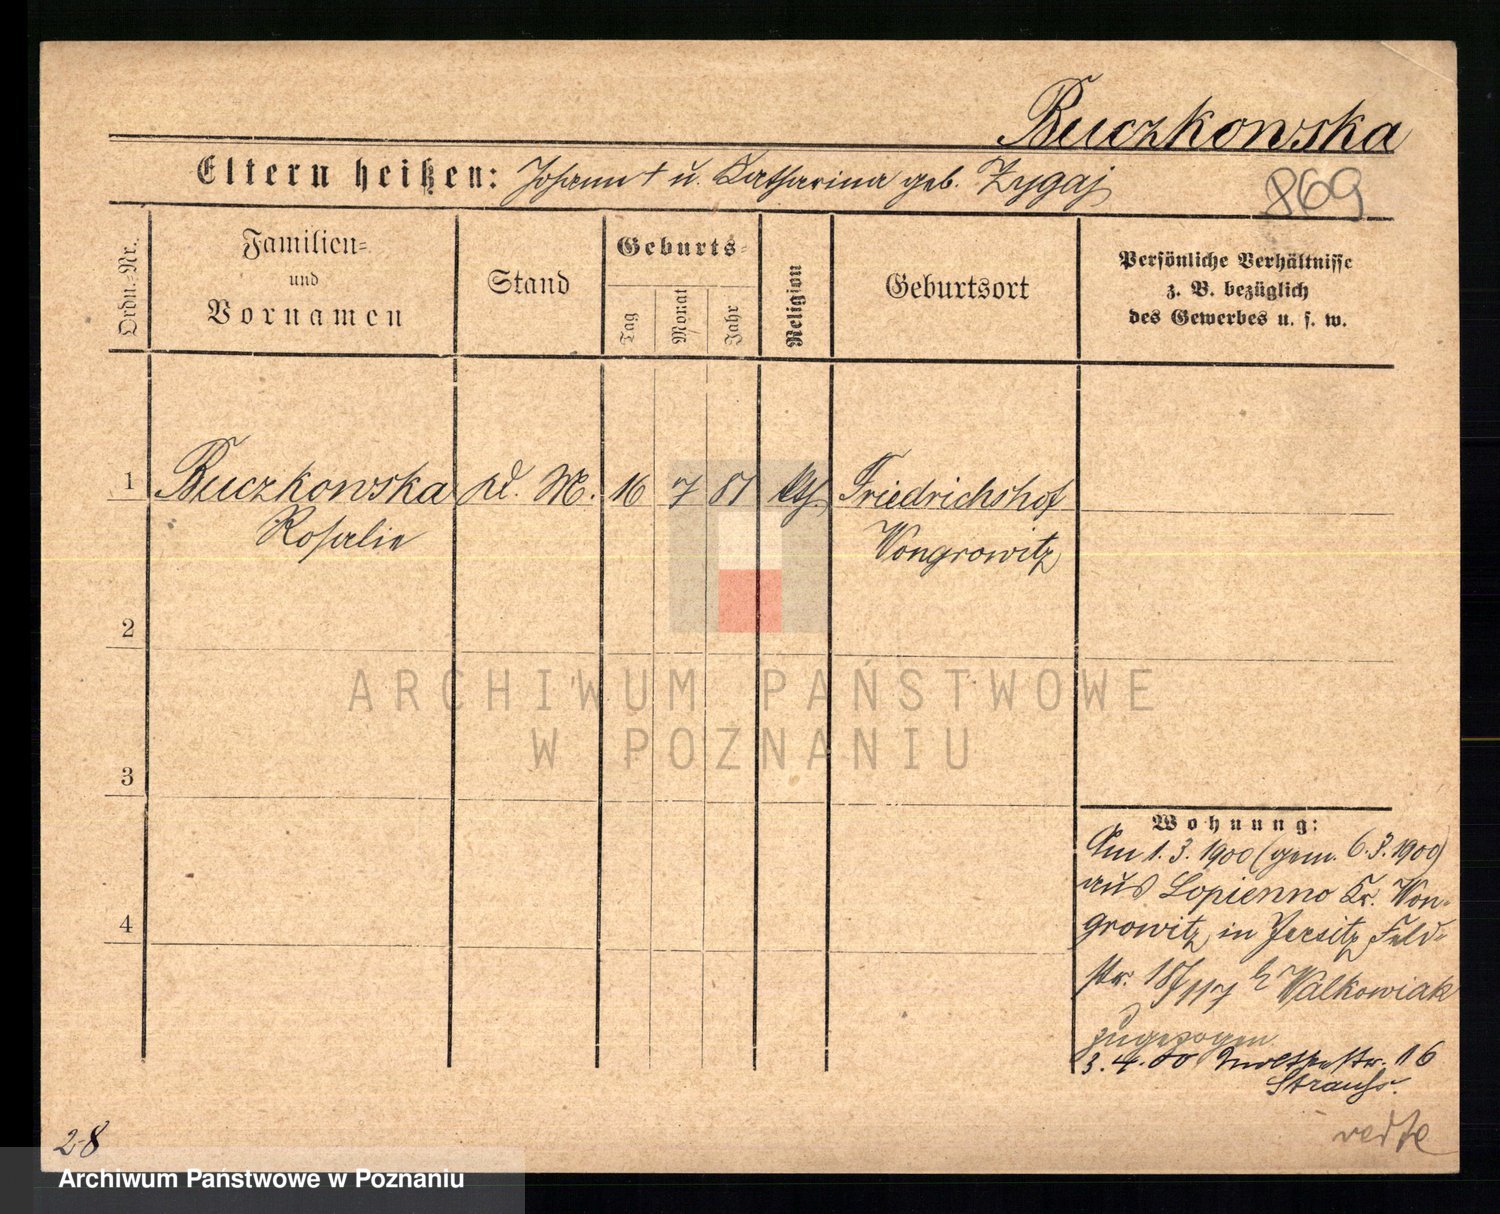 Buczkowska
Eltern heißen: Johann † u. Katharina geb. Zygaj
869
Ordn.=Nr.
Familien=
und
Vornamen
Stand
Geburts=
Tag
Monat
Jahr
Religion
Geburtsort
Persönliche Verhältnisse
z. B. bezüglich
des Gewerbes u. s. w.
1 Buczkowska M. 16 7 81 kth. Friedrichshof
Rosalie Wongrowitz
2
3
4
ARCHIWUM PAŃSTWOWE
W POZNANIU
Wohnung:
Am 1.3.1900 (gem. 6.3.1900)
aus Lopienno Kr. Won-
growitz in Jersitz Feld-
str. b Walkowiak
zugezogen
3.4.00 16
Strauss.
2-8
Archiwum Państwowe w Poznaniu